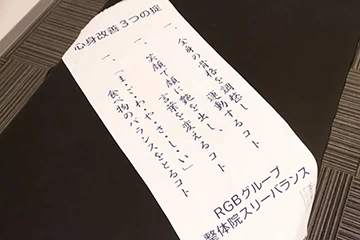 心身改善3つの掟
一、全身の骨格を調整し
運動するコト
一、笑顔で顔に艶を出し、
言葉を変えるコト
一、「ま・ご・わ・や・さ・し・い」
食べ物のバランスをとるコト
RGBグループ
整体院スリーバランス